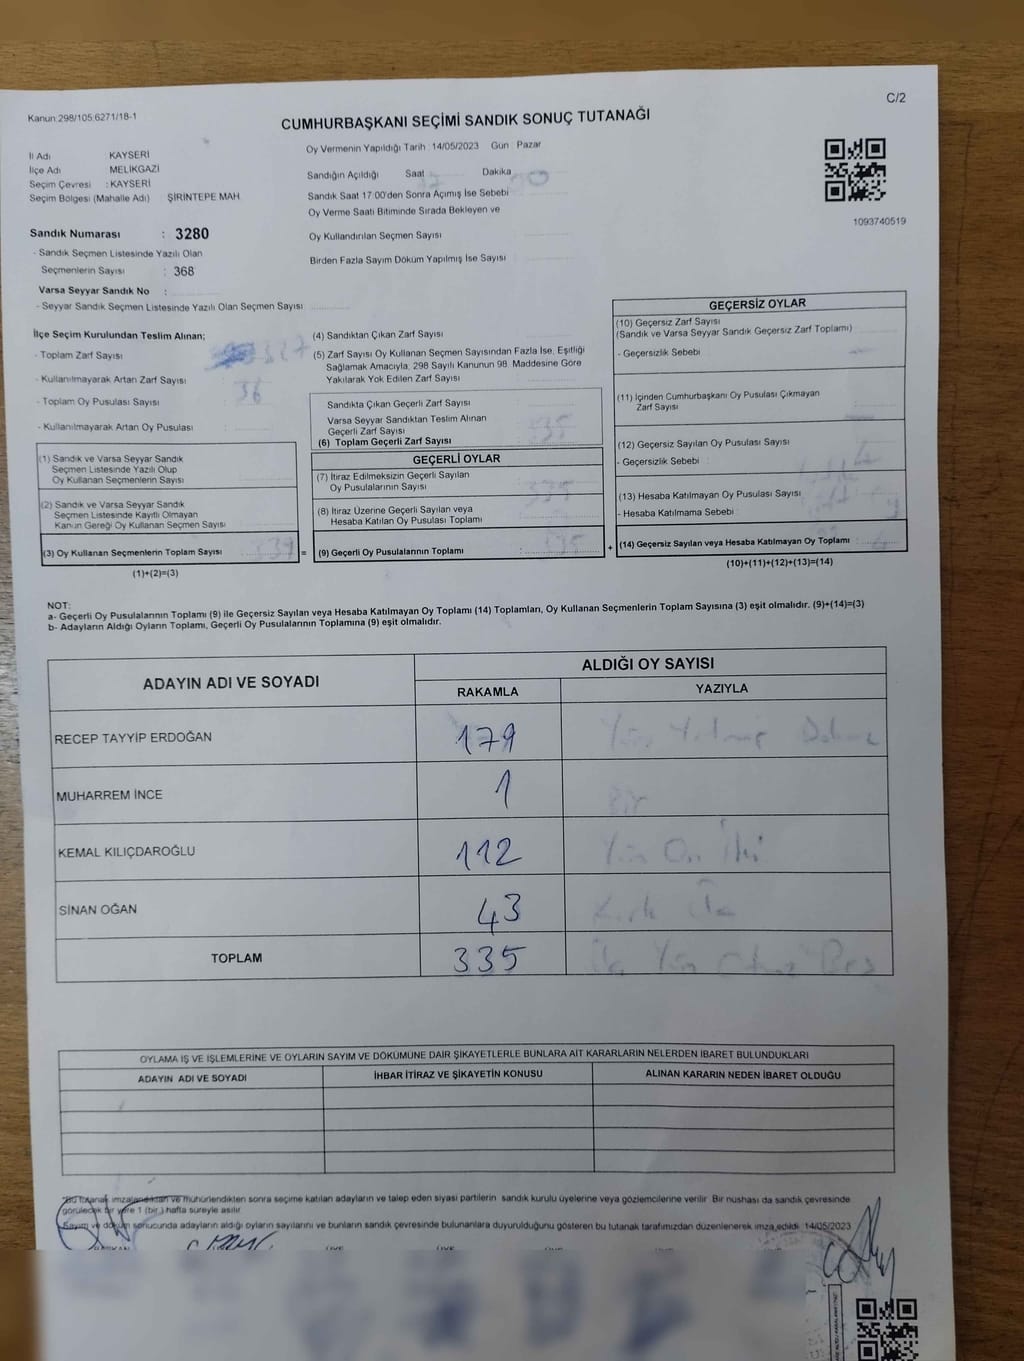 C/2
Kanun:298/105:6271/18-1
CUMHURBAŞKANI SEÇİMİ SANDIK SONUÇ TUTANAĞI
İl Adı KAYSERİ
İlçe Adı MELİKGAZİ
Seçim Çevresi : KAYSERİ
Seçim Bölgesi (Mahalle Adı) ŞİRİNTEPE MAH
Oy Vermenin Yapıldığı Tarih :14/05/2023 Gün : Pazar
Sandığın Açıldığı Saat Dakika
Sandık Saat 17:00'den Sonra Açımış İse Sebebi
Oy Verme Saati Bitiminde Sırada Bekleyen ve
Oy Kullandırılan Seçmen Sayısı
Birden Fazla Sayım Döküm Yapılmış İse Sayısı
1093740519
Sandık Numarası : 3280
- Sandık Seçmen Listesinde Yazılı Olan
Seçmenlerin Sayısı : 368
Varsa Seyyar Sandık No :
- Seyyar Sandık Seçmen Listesinde Yazılı Olan Seçmen Sayısı
İlçe Seçim Kurulundan Teslim Alınan;
- Toplam Zarf Sayısı
- Kullanılmayarak Artan Zarf Sayısı 36
- Toplam Oy Pusulası Sayısı
- Kullanılmayarak Artan Oy Pusulası
(1) Sandık ve Varsa Seyyar Sandık
Seçmen Listesinde Yazılı Olup
Oy Kullanan Seçmenlerin Sayısı
(2) Sandık ve Varsa Seyyar Sandık
Seçmen Listesinde Kayıtlı Olmayan
Kanun Gereği Oy Kullanan Seçmen Sayısı
(3) Oy Kullanan Seçmenlerin Toplam Sayısı 339 =
(1)+(2)=(3)
(4) Sandıktan Çıkan Zarf Sayısı
(5) Zarf Sayısı Oy Kullanan Seçmen Sayısından Fazla İse, Eşitliği
Sağlamak Amacıyla, 298 Sayılı Kanunun 98. Maddesine Göre
Yakılarak Yok Edilen Zarf Sayısı
Sandıkta Çıkan Geçerli Zarf Sayısı
Varsa Seyyar Sandıktan Teslim Alınan
Geçerli Zarf Sayısı
(6) Toplam Geçerli Zarf Sayısı 335
GEÇERLİ OYLAR
(7) İtiraz Edilmeksizin Geçerli Sayılan
Oy Pusulalarının Sayısı 335
(8) İtiraz Üzerine Geçerli Sayılan veya
Hesaba Katılan Oy Pusulası Toplamı
(9) Geçerli Oy Pusulalarının Toplamı 335 +
GEÇERSİZ OYLAR
(10) Geçersiz Zarf Sayısı
(Sandık ve Varsa Seyyar Sandık Geçersiz Zarf Toplamı)
- Geçersizlik Sebebi
(11) İçinden Cumhurbaşkanı Oy Pusulası Çıkmayan
Zarf Sayısı
(12) Geçersiz Sayılan Oy Pusulası Sayısı 4
- Geçersizlik Sebebi :
(13) Hesaba Katılmayan Oy Pusulası Sayısı
- Hesaba Katılmama Sebebi :
(14) Geçersiz Sayılan veya Hesaba Katılmayan Oy Toplamı : 4
(10)+(11)+(12)+(13)=(14)
NOT:
a- Geçerli Oy Pusulalarının Toplamı (9) ile Geçersiz Sayılan veya Hesaba Katılmayan Oy Toplamı (14) Toplamları, Oy Kullanan Seçmenlerin Toplam Sayısına (3) eşit olmalıdır. (9)+(14)=(3)
b- Adayların Aldığı Oyların Toplamı, Geçerli Oy Pusulalarının Toplamına (9) eşit olmalıdır.
ADAYIN ADI VE SOYADI ALDIĞI OY SAYISI
RAKAMLA YAZIYLA
RECEP TAYYİP ERDOĞAN 179 Yüz Yetmiş Dokuz
MUHARREM İNCE 1 Bir
KEMAL KILIÇDAROĞLU 112 Yüz On İki
SİNAN OĞAN 43 Kırk Üç
TOPLAM 335 Üç Yüz Otuz Beş
OYLAMA İŞ VE İŞLEMLERİNE VE OYLARIN SAYIM VE DÖKÜMÜNE DAİR ŞİKAYETLERLE BUNLARA AİT KARARLARIN NELERDEN İBARET BULUNDUKLARI
ADAYIN ADI VE SOYADI İHBAR İTİRAZ VE ŞİKAYETİN KONUSU ALINAN KARARIN NEDEN İBARET OLDUĞU
*Bu tutanak imzalandıktan ve mühürlendikten sonra seçime katılan adayların ve talep eden siyasi partilerin sandık kurulu üyelerine veya gözlemcilerine verilir. Bir nüshası da sandık çevresinde
görülecek bir yere 1 (bir) hafta süreyle asılır.
Sayım ve döküm sonucunda adayların aldığı oyların sayılarını ve bunların sandık çevresinde bulunanlara duyurulduğunu gösteren bu tutanak tarafımızdan düzenlenerek imza edildi. 14/05/2023